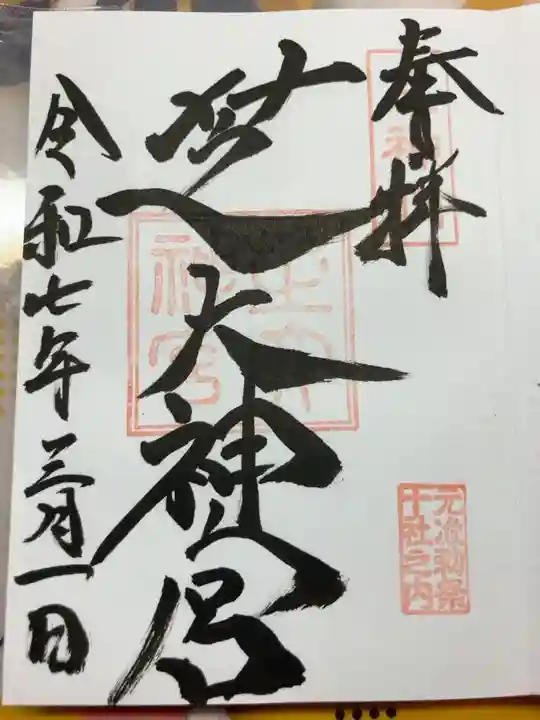 奉拝
芝大神宮
令和七年三月一日
芝大
神宮
元准勅祭
十社之内